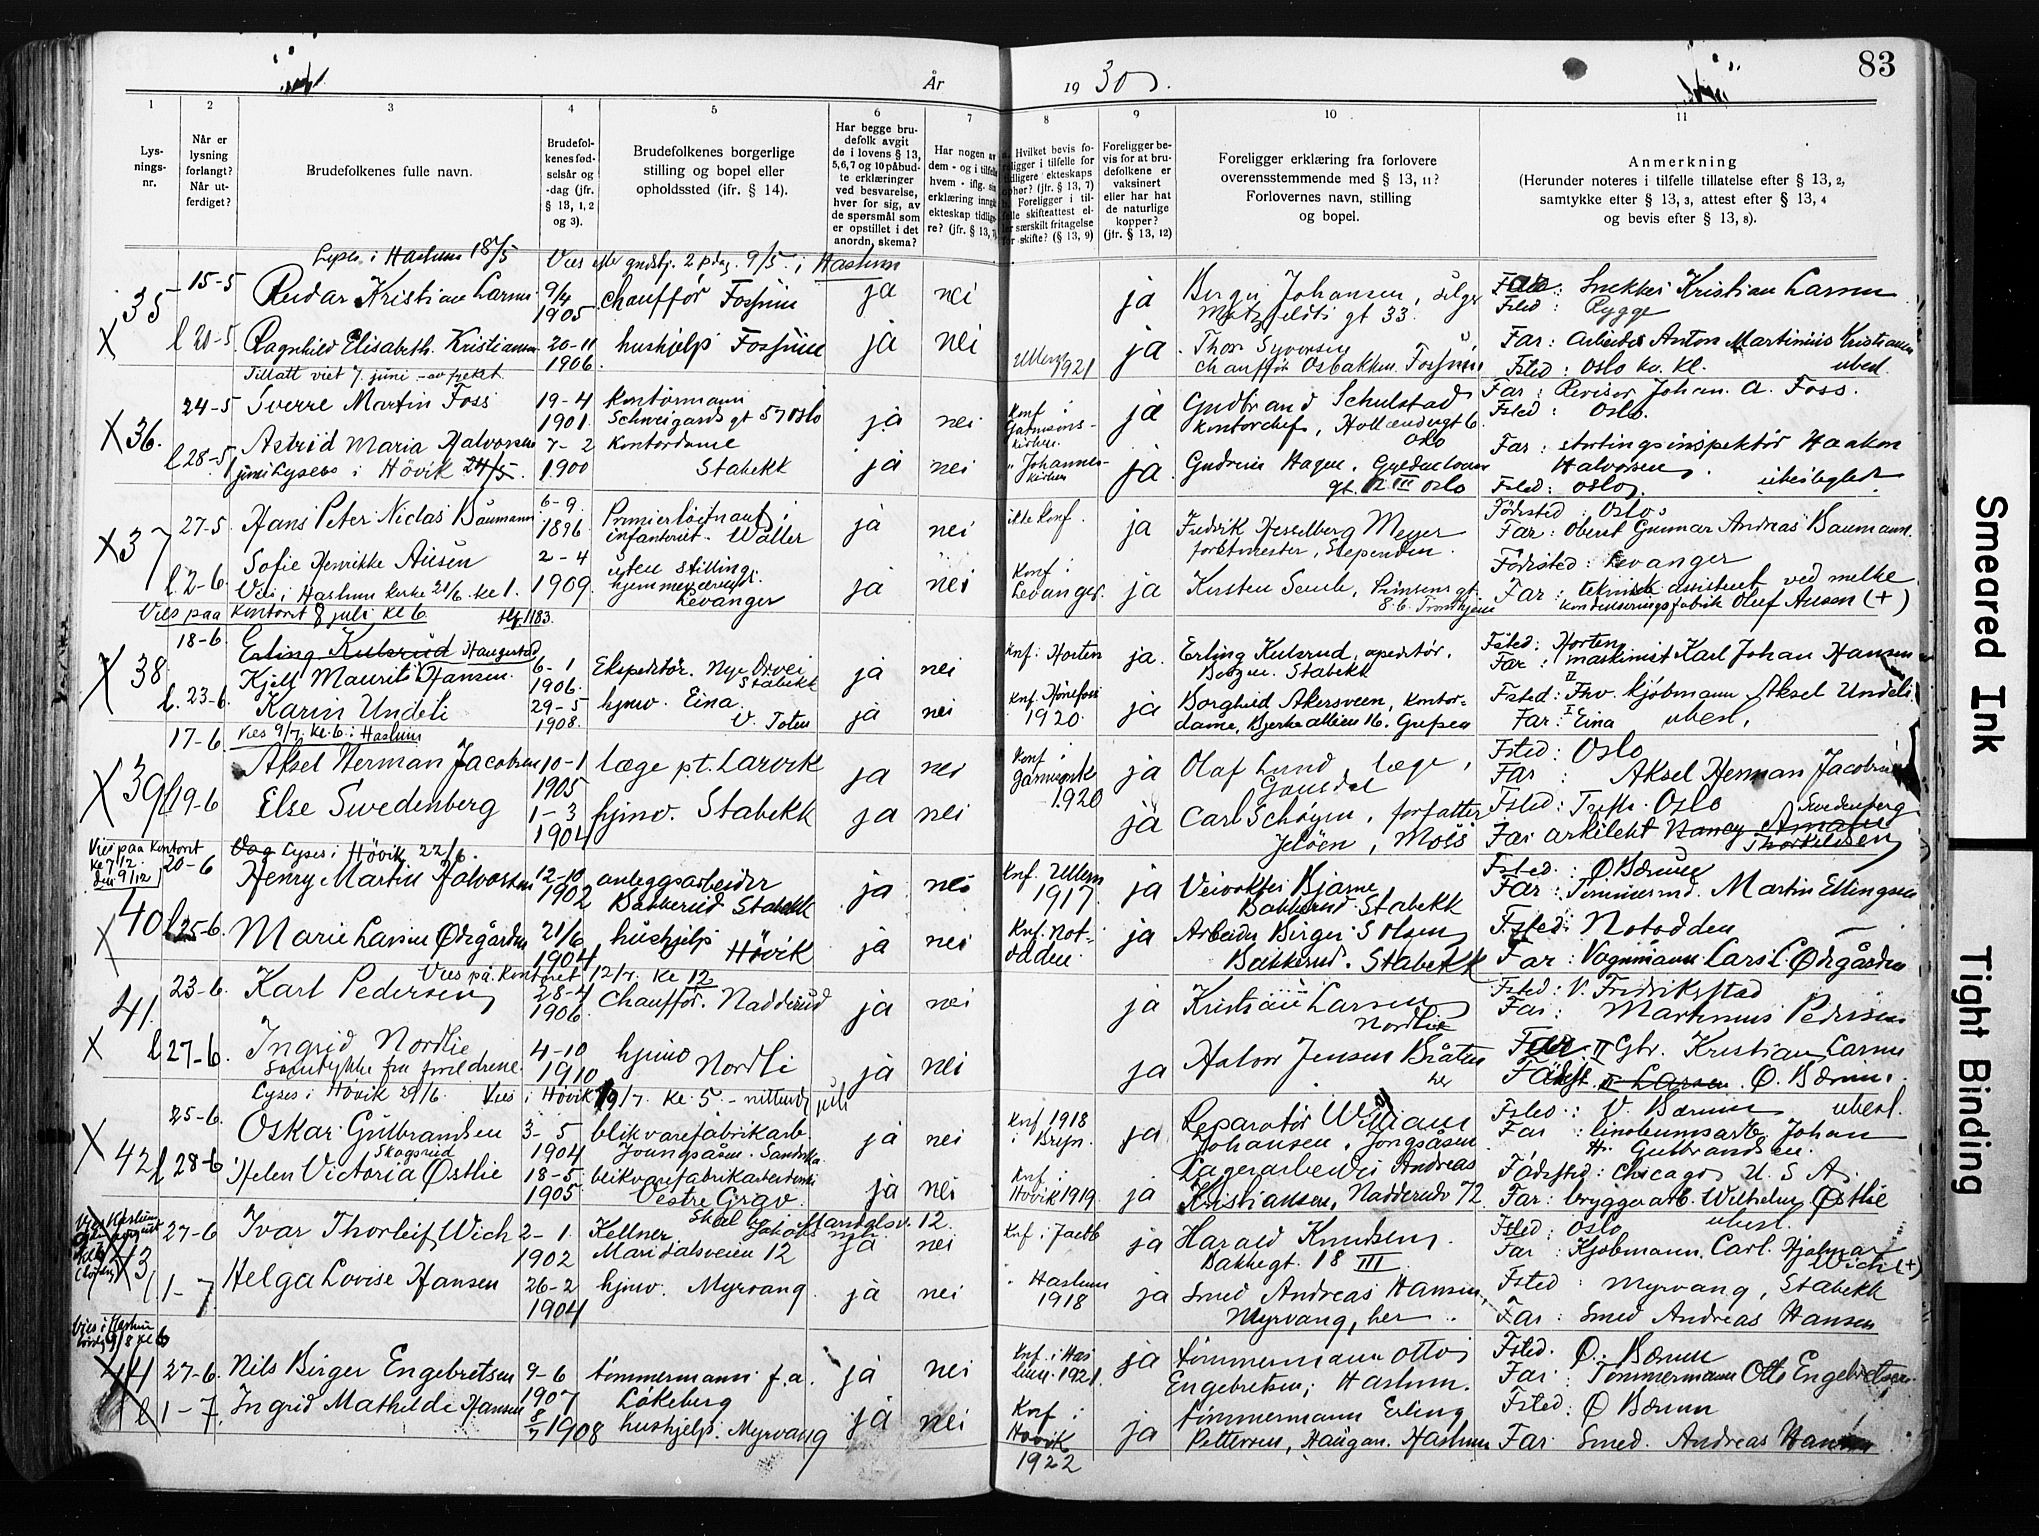 83
År
19 30.
1
2
3
4
5
6
7
8
9
10
11
Lys-
nings-
nr.
Når er
lysning
forlangt?
Når ut-
ferdiget?
Brudefolkenes fulle navn.
Brudefol-
kenes fød-
selsår og
-dag (jfr.
§ 13, 1, 2
og 3).
Brudefolkenes borgerlige
stilling og bopel eller
opholdssted (ifr. § 14).
Har begge bru-
defolk avgit
de i lovens § 13,
5,6,7 og 10 påbud-
te erklæringer
ved besvarelse,
hver for sig, av
de spørsmål som
er opstillet i det
anordn. skema?
Har nogen av
dem - og i tilfelle
hvem - iflg. sin
erklæring inngått
ekteskap tidlige-
re? (jfr. § 13,
Hvilket bevis fo-
religger i tilfelle for
tidligere ekteskaps
ophør? (jfr. § 13, 7)
b. Foreligger i til-
felle skifteattest el-
ler særskilt fritagelse
for skifte? (§ 13, 9)
Foreligger be-
vis for at bru-
defolkene er
vaksinert
eller har hat
de naturlige
kopper?
(jfr. § 13, 12)
Foreligger erklæring fra forlovere
overensstemmende med § 13, 11?
Forlovernes navn, stilling
og bopel.
Anmerkning
(Herunder noteres i tilfelle tillatelse efter § 13, 2,
samtykke efter § 13, 3, attest efter § 13, 4
og bevis efter § 13, 8).
Lyses i Haslum 18/5 i Haslum
35 15-5 Reidar Kristian Larsen 9/4 1905 chauffør Fossum ja nei ja Birger Johansen, selger
gt 33. Far: Snekker Kristian Larsen
Fsted: Rygge
X l 20-5 Ragnhild Elisabeth Kristiansen 20-11 1906 hushjelp Fossum ja nei 1921 ja Thor Syversen
chauffør Osbakken Fossum Far: Arbeider Anton Martinius Kristiansen
Fsted: Oslo ubesl.
Tillatt viet 7. juni
X 36. 24-5 Sverre Martin Foss 19-4 1901. Kontormann
Schweigaards gt 57 Oslo ja nei Konf i
Garnisons-
kirken ja Gudbrand Schulstad
kontorchef, Hollendergt 6
Oslo Far: Revisor Johan A. Foss.
Fsted: Oslo.
l 28-5 Astrid Maria Halvorsen 7-2 1900 Kontordame
Stabekk ja nei " Johannes-
kirken ja Gudrun Hagen,
gt. 12 III Oslo Far: stortingsinspektør Haakon
Halvorsen
Fsted: Oslo. ubeslegtet
Lyses i Høvik 24/5.
X 37 27-5 Hans Peter Niclas Baumann 6-9 1896 Premierløitnant i
infanteriet. Waller ja nei ikke konf. ja Fredrik Hesselberg Meyer
forstmester, Slependen. Fødested: Oslo
Far: Oberst Gunnar Andreas Baumann.
l. 2-6. Sofie Henrikke Ausen 2-4 1909. uten stilling
hjemmeværende
Levanger ja nei Konf i
Levanger. ja Kirsten
8 b. Trondhjem Fødested: Levanger
Far: teknisk assistent ved melke
kondenseringsfabrik Oluf Ausen (+)
Vies i Haslum kirke 21/6. kl 1.
Vies paa kontoret 8 juli kl 6.
X 38. 18-6 Erling Kulsrud Haugestad
Kjell Maurits Hansen 6-1 1906. Ekspeditør. Nye
Stabekk ja nei Knf: Horten ja. Erling Kulsrud, operatør.
Stabekk Fsted: Horten
Far: maskinist Karl Johan Hansen
l. 23-6. Karin Undeli 29-5 1908. hjmv. Eina
V. Toten ja nei Knf Hønefoss
1920. ja Borghild Akersveen, kontor-
dame, Bjerke alleen 16. Grefsen Fsted: Fhv. kjøbmann Aksel Undeli
Far: Eina ubesl.
Vies 9/7. kl. 6 i Haslum
X 39 17-6 Aksel Herman Jacobsen 10-1 1905 læge pt. Larvik ja nei Konf i
1920 ja Olaf Lund, læge,
Gausdal Fsted: Oslo
Far Aksel Herman Jacobsen
l 19-6 Else Swedenberg 1-3 1904 hjmv. Stabekk ja nei ja Carl Schøyen, forfatter
Jeløen, Moss Fsted: Oslo Swedenberg
Far arkitekt Thorkildsen
Vies paa kontoret
kl 7 12.
Lyses i Høvik 22/6.
X 40 20-6 Henry Martin Halvorsen 12-10 1902 anleggsarbeider
Bakkerud Stabekk ja nei Knf. Ullern
1917. ja Veivokter Bjarne
Bakkerud. Stabekk Fsted: Ø Bærum
Far: Tømmermd. Martin Ellingsen
l 25-6. Marie Larsen Ødegården 21/6 1904 hushjelp Høvik ja nei Knf. Not-
odden ja Arbeider Birger Olsen
Bakkerud. Stabekk Fsted: Notodden
Far: Vognmann Lars L. Ødegården
Vies på kontoret 12/7. kl 12
41. 23-6. Karl Pedersen 28-4 1906. Chauffør. Nadderud ja nei ja Kristian Larsen
Nordlie Fsted: V. Fredrikstad
Far: Martinius Pedersen
X l 27-6. Ingrid Nordlie
Samtykke fra foreldrene. 4-10 1910 hjmv Nordli ja nei ja Halvor Jensen Bråten
her Far II Gbr. Kristian Larsen
Ø. Bærum.
Lyses i Høvik 29/6. Vies i Høvik 19/7. kl. 5. - nittende juli
X 42 25-6 Oskar Gulbrandsen
Skogsrud 3-5 1904 blikvarefabrikarb
Jongsåsen. Sandvika ja nei Knf 1918
i Bryn. ja Reparatør William
Johansen, Jongsåsen Fsted: V. Bærum ubesl.
Far: linoleumsarb. Johan
Hr. Gulbrandsen.
l 28-6 Helen Victoria Østlie 18-5. 1905. blikvarefabrikarbeiderske
Vestre Grav. ja nei Knf i
Høvik 1919. ja Lagerarbeider Andreas
Kristiansen, Nadderudv 72. Fødested: Chicago U.S.A.
Far: bryggeriarb. Wilhelm Østlie
ubesl.
43 27-6 Ivar Thorleif Wich 2-1. 1902 Kellner
Maridalsveien 12 ja nei Knf i ja Harald Knudsen.
Bakkegt. 18 III Fsted: Oslo
Far: Kjøbmann. Carl Hjalmar
Wich (+)
l 1-7. Helga Lovise Hansen 26-2 1904 hjmv. Myrvang ja nei " Haslum
1918 ja Smed Andreas Hansen,
Myrvang, her Fsted: Myrvang, Stabekk
Far: Smed Andreas Hansen
Vies i Haslum
9/8 kl 6
44 27-6. Nils Birger Engebretsen 9-6 1907 tømmermann f.a.
Løkeberg ja nei Knf. i Has
lum. 1921. ja tømmermann Otto
Engebretsen, Haslum. Fsted. Ø. Bærum
Far: Tømmermann Otto Engebretsen
l 1-7. Ingrid Mathilde Hansen 8/7 1908 hushjelp. Myrvang ja nei Knf i
Høvik
1922 ja tømmermann Erling
Pettersen, Haugan. Haslum Fsted: Ø Bærum
Far: Smed. Andreas Hansen
Smeared Ink
Tight Binding